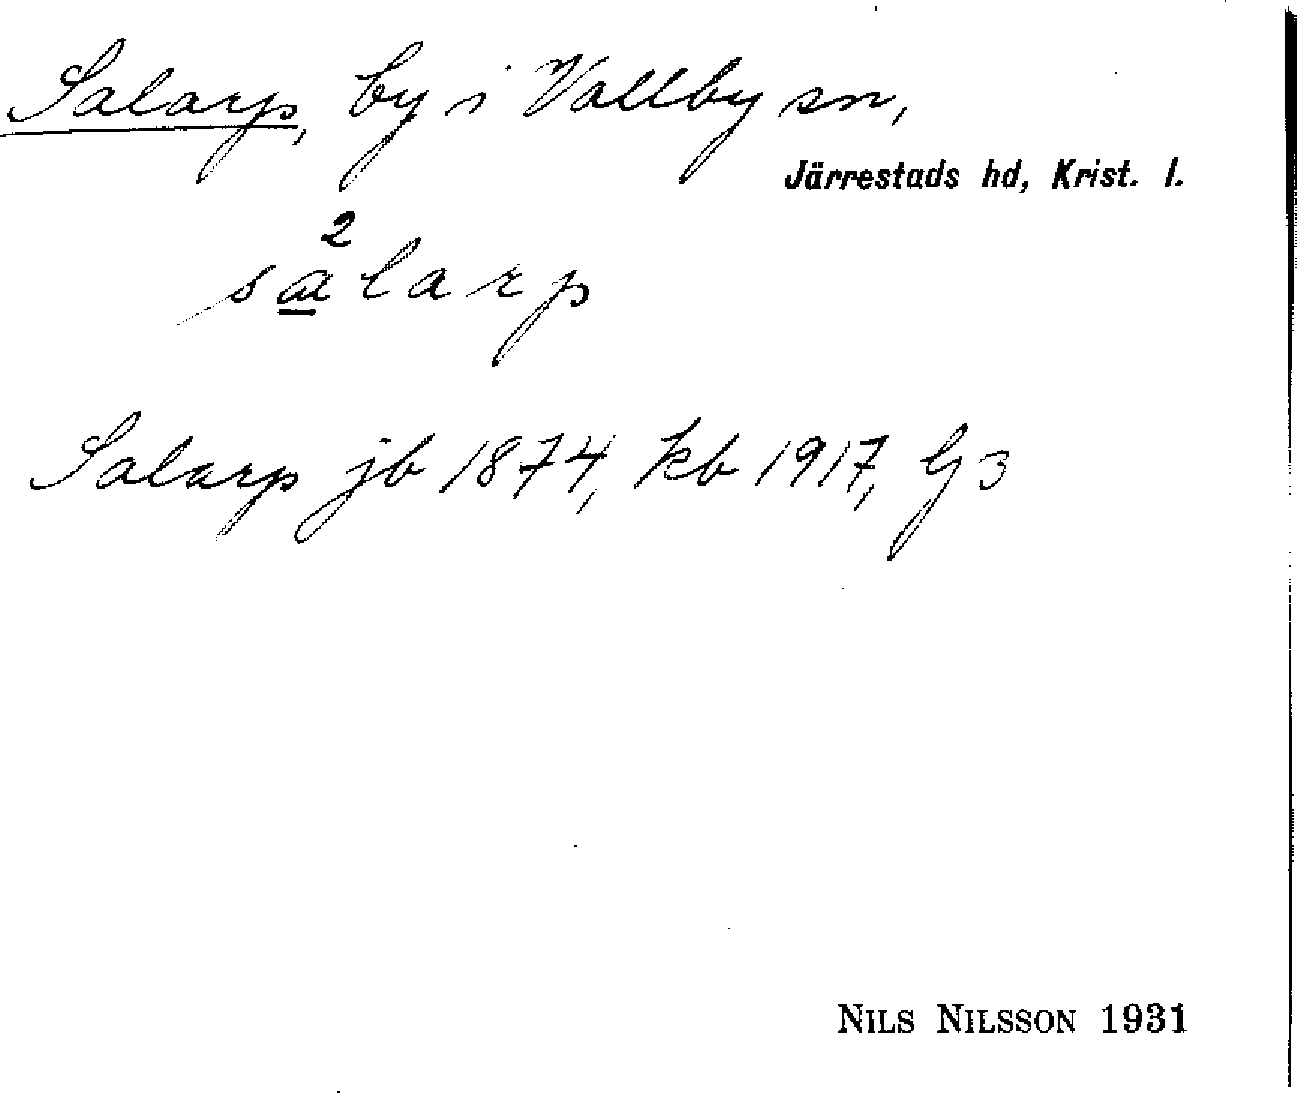 Salarp, by i Vallby sn,
Järrestads hd, Krist. l.
2
salarp
Salarp jb 1874, kb 1917, G3
NILS NILSSON 1931